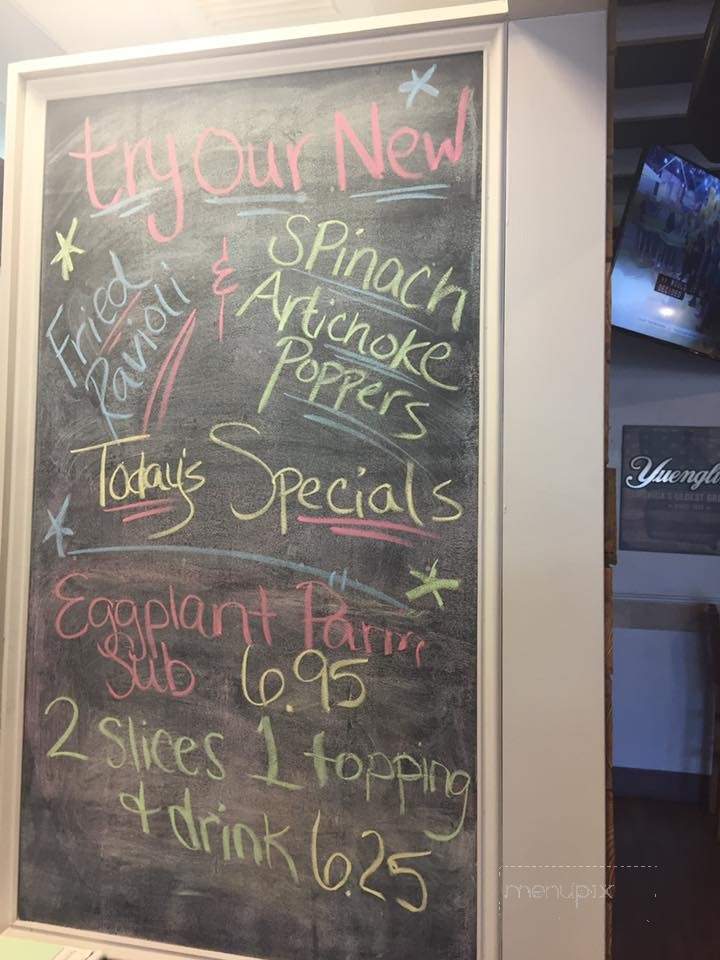 try Our New
Fried
Ravioli
&
Spinach
Artichoke
Poppers
Today's Specials
Eggplant Parm
Sub 6.95
2 slices 1 topping
& drink 6.25
Yuengli
menupix